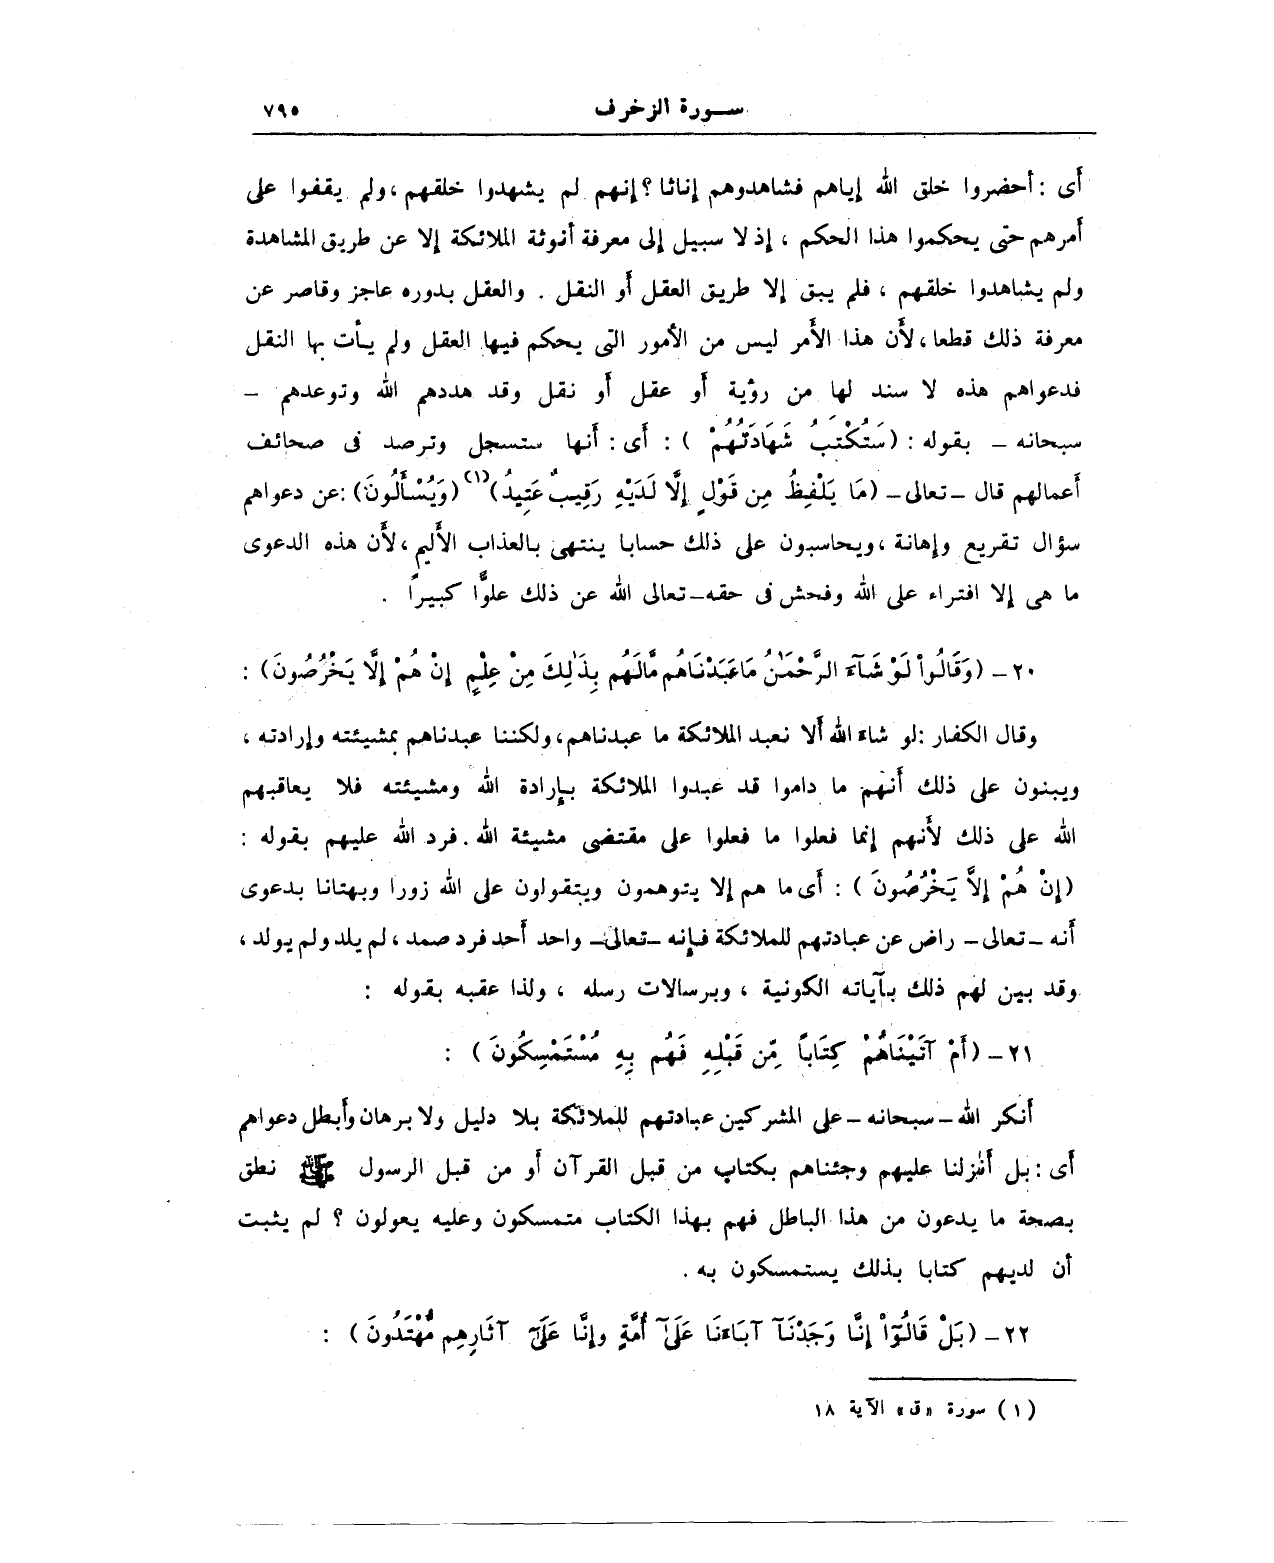 سورة الزخرف ٧٩٥
أى : أحضروا خلق الله إياهم فشاهدوهم إناثا ؟ إنهم لم يشهدوا خلقهم ، ولم يقفوا على
أمرهم حتى يحكموا هذا الحكم ، إذ لا سبيل إلى معرفة أنوثة الملائكة إلا عن طريق المشاهدة
ولم يشاهدوا خلقهم ، فلم يبق إلا طريق العقل أو النقل . والعقل بدوره عاجز وقاصر عن
معرفة ذلك قطعا ، لأن هذا الأمر ليس من الأمور التى يحكم فيها العقل ولم يأت بها النقل
فدعواهم هذه لا سند لها من رؤية أو عقل أو نقل وقد هددهم الله وتوعدهم –
سبحانه – بقوله : ( سَتُكْتَبُ شَهَادَتُهُمْ ) : أى : أنها ستسجل وترصد فى صحائف
أعمالهم قال – تعالى – (مَا يَلْفِظُ مِن قَوْلٍ إِلَّا لَدَيْهِ رَقِيبٌ عَتِيدُ) (١) (وَيُسْأَلُونَ) : عن دعواهم
سؤال تقريع وإهانة ، ويحاسبون على ذلك حسابا ينتهى بالعذاب الأليم ، لأن هذه الدعوى
ما هى إلا افتراء على الله وفحش فى حقه – تعالى الله عن ذلك علوًّا كبيراً .
٢٠ – (وَقَالُواْ لَوْ شَآءَ الرَّحْمَٰنُ مَا عَبَدْنَاهُم مَّالَهُم بِذَٰلِكَ مِنْ عِلْمٍ إِنْ هُمْ إِلَّا يَخْرُصُونَ) :
وقال الكفار : لو شاء الله ألا نعبد الملائكة ما عبدناهم ، ولكننا عبدناهم بمشيئته وإرادته ،
ويبنون على ذلك أنهم ما داموا قد عبدوا الملائكة بإرادة الله ومشيئته فلا يعاقبهم
الله على ذلك لأنهم إنما فعلوا ما فعلوا على مقتضى مشيئة الله . فرد الله عليهم بقوله :
(إِنْ هُمْ إِلاَّ يَخْرُصُونَ ) : أى ما هم إلا يتوهمون ويتقولون على الله زورا وبهتانا بدعوى
أنه – تعالى – راض عن عبادتهم للملائكة فإنه – تعالى – واحد أحد فرد صمد ، لم يلد ولم يولد ،
وقد بين لهم ذلك بآياته الكونية ، وبرسالات رسله ، ولذا عقبه بقوله :
٢١ – (أَمْ آتَيْنَاهُمْ كِتَاباً مِّن قَبْلِهِ فَهُم بِهِ مُسْتَمْسِكُونَ ) :
أنكر الله – سبحانه – على المشركين عبادتهم للملائكة بلا دليل ولا برهان وأبطل دعواهم
أى : بل أنزلنا عليهم وجئناهم بكتاب من قبل القرآن أو من قبل الرسول ﷺ نطق
بصحة ما يدعون من هذا الباطل فهم بهذا الكتاب متمسكون وعليه يعولون ؟ لم يثبت
أن لديهم كتابا بذلك يستمسكون به .
٢٢ – (بَلْ قَالُوٓاْ إِنَّا وَجَدْنَآ آبَاءَنَا عَلَىٰٓ أُمَّةٍ وإِنَّا عَلَىٰٓ آثَارِهِم مُّهْتَدُونَ ) :
(١) سورة «ق» الآية ١٨